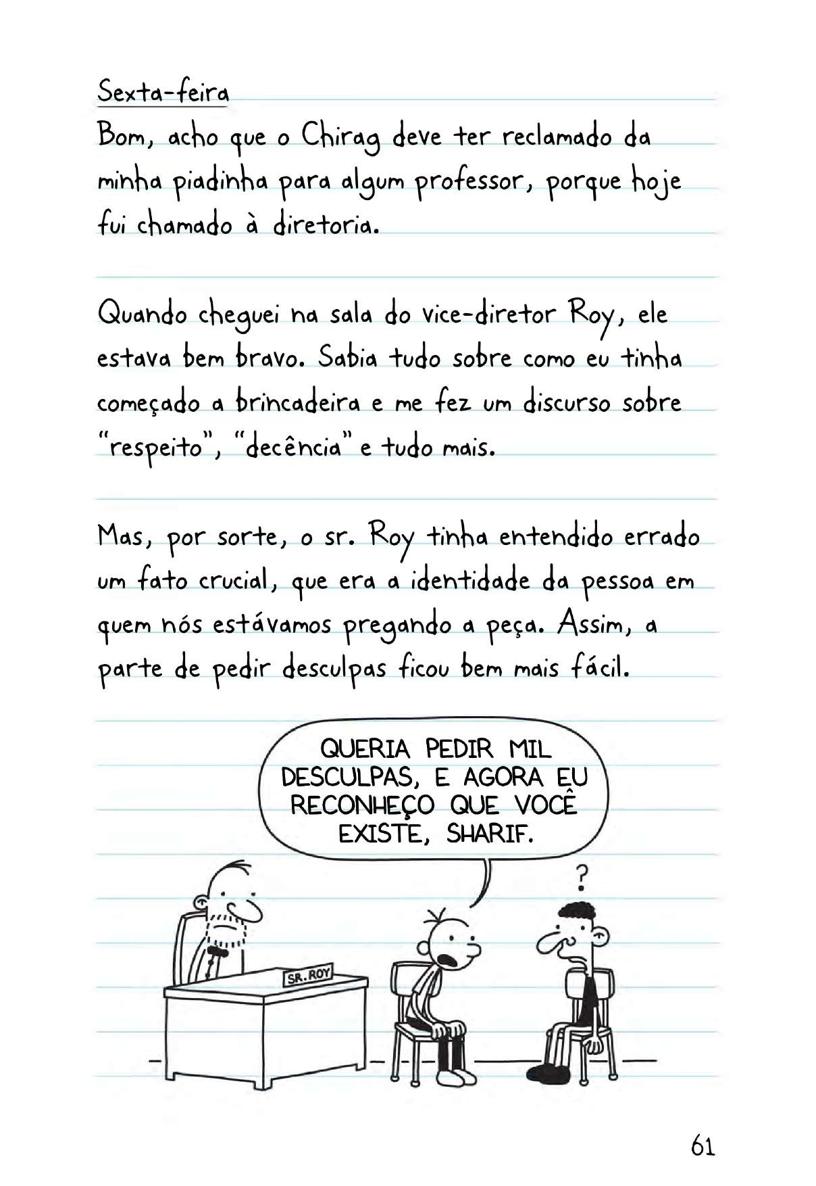 Sexta-feira
Bom, acho que o Chirag deve ter reclamado da
minha piadinha para algum professor, porque hoje
fui chamado à diretoria.
Quando cheguei na sala do vice-diretor Roy, ele
estava bem bravo. Sabia tudo sobre como eu tinha
começado a brincadeira e me fez um discurso sobre
“respeito”, “decência” e tudo mais.
Mas, por sorte, o sr. Roy tinha entendido errado
um fato crucial, que era a identidade da pessoa em
quem nós estávamos pregando a peça. Assim, a
parte de pedir desculpas ficou bem mais fácil.
QUERIA PEDIR MIL
DESCULPAS, E AGORA EU
RECONHEÇO QUE VOCÊ
EXISTE, SHARIF.
?
SR. ROY
61